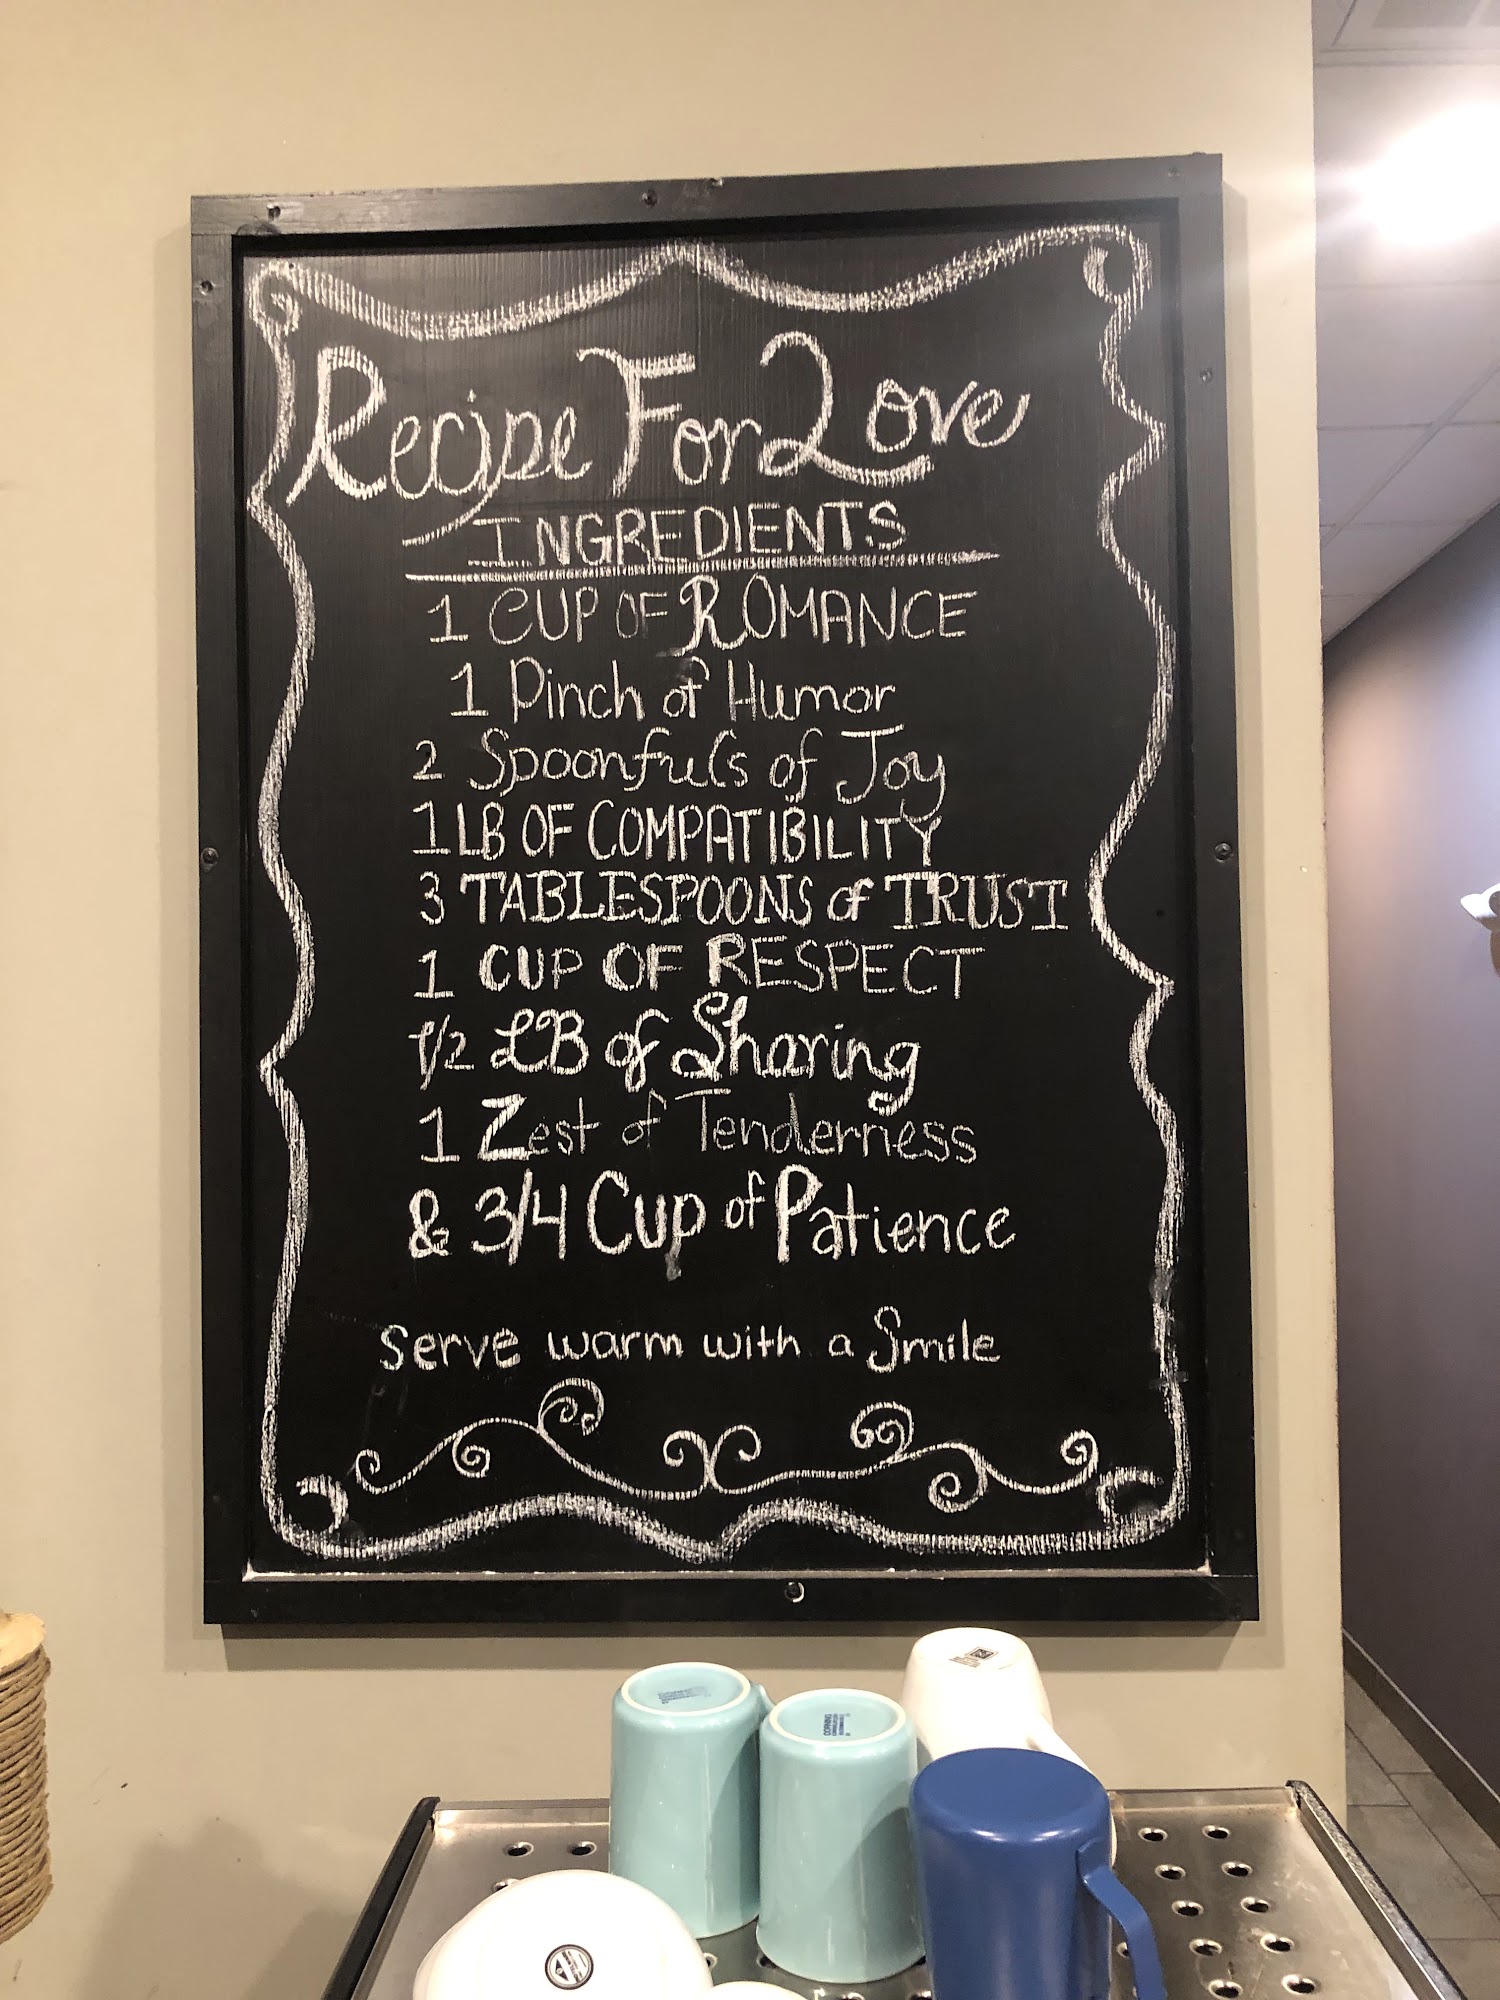 Recipe For Love
INGREDIENTS
1 CUP OF ROMANCE
1 Pinch of Humor
2 Spoonfuls of Joy
1 LB OF COMPATIBILITY
3 TABLESPOONS of TRUST
1 CUP OF RESPECT
1/2 LB of Sharing
1 Zest of Tenderness
& 3/4 Cup of Patience
Serve warm with a Smile
CORNING